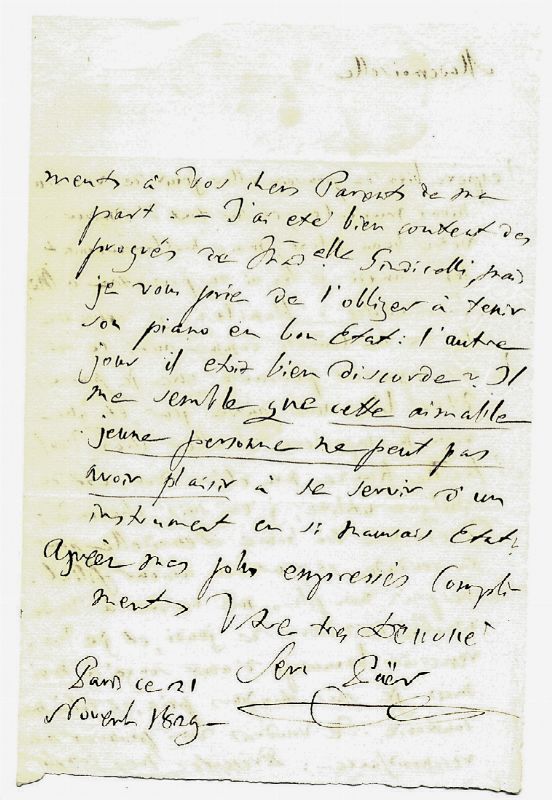 Mademoiselle
ments à Vos chers Parents de ma
part – J'ai eté bien content des
progrés de Mad.elle Giudicelli, mais
je vous prie de l'obliger à tenir
son piano en bon Etat: l'autre
jour il etoit bien discorde. Il
me semble que cette aimable
jeune personne ne peut pas
avoir plaisir à se servir d'un
instrument en si mauvais Etat.
Agréér mes plus empressés Compli-
ments Votre tres Dévoué
Serv Päer
Paris ce 21
Novemb. 1829 –